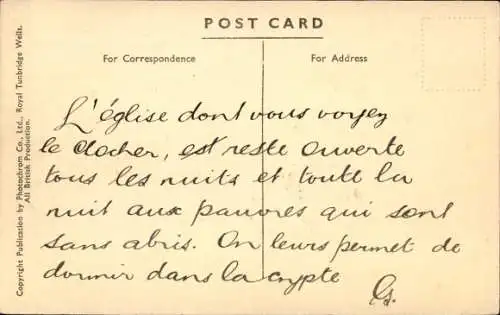 POST CARD
For Correspondence
For Address
L'église dont vous voyez
le clocher, est reste ouverte
tous les nuits et toute la
nuit aux pauvres qui sont
sans abris. On leurs permet de
dormir dans la crypte
G.
Copyright Publication by Photochrom Co., Ltd., Royal Tunbridge Wells.
All British Production.